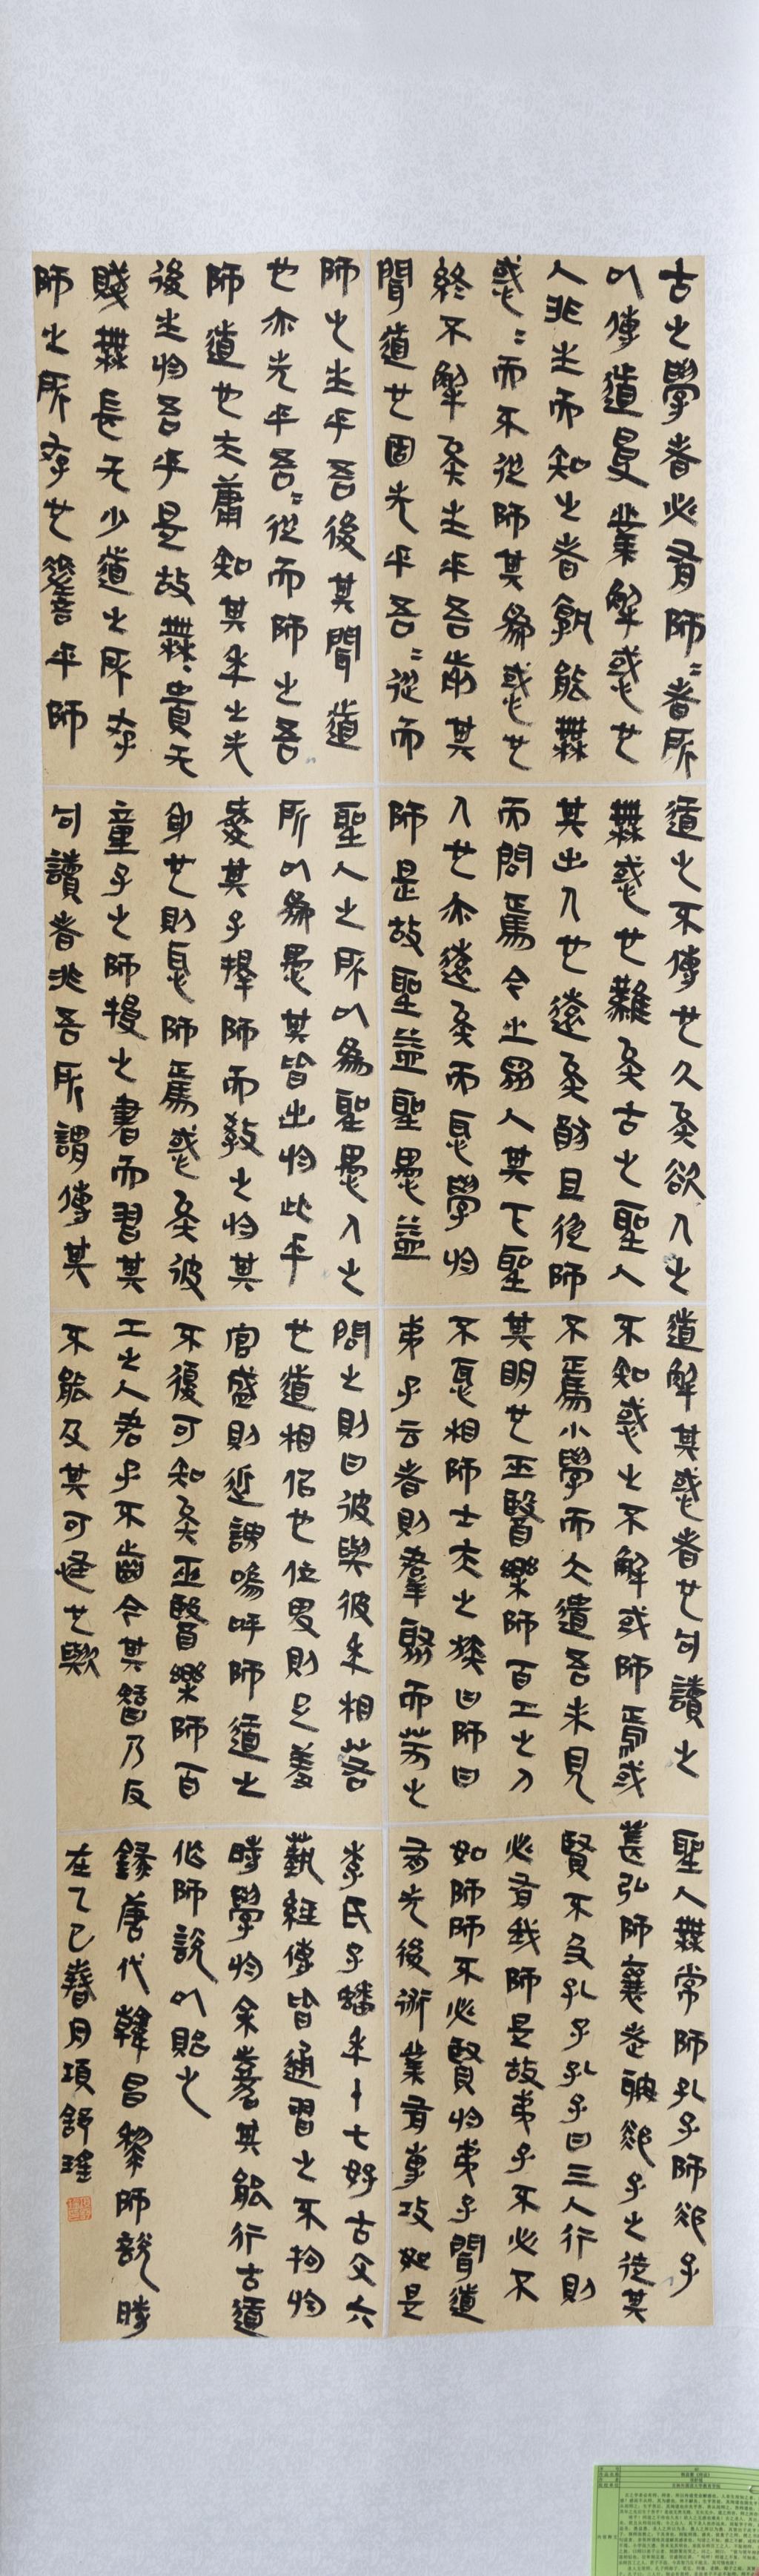 古之學者必有師=者所
以傳道受業解惑也
人非生而知之者孰能無
惑=而不從師其為惑也
終不解矣生乎吾前其
聞道也固先乎吾=從而
師之生乎吾後其聞道
也亦先乎吾=從而師之吾
師道也夫庸知其年之先
後生於吾乎是故無貴无
賤無長无少道之所存
師之所存也嗟乎師
道之不傳也久矣欲人之
無惑也難矣古之聖人
其出人也遠矣猶且從師
而問焉今之眾人其下聖
人也亦遠矣而恥學於
師是故聖益聖愚益
聖人之所以為聖愚人之
所以為愚其皆出於此乎
愛其子擇師而教之於其
身也則恥師焉惑矣彼
童子之師授之書而習其
句讀者非吾所謂傳其
道解其惑者也句讀之
不知惑之不解或師焉或
不焉小學而大遺吾未見
其明也巫醫樂師百工之人
不恥相師士夫之族曰師曰
弟子云者則羣聚而笑之
問之則曰彼與彼年相若
也道相似也位卑則足羞
官盛則近諛嗚呼師道之
不復可知矣巫醫樂師百
工之人君子不齒今其智乃反
不能及其可怪也歟
聖人無常師孔子師郯子
萇弘師襄老聃郯子之徒其
賢不及孔子孔子曰三人行則
必有我師是故弟子不必不
如師師不必賢於弟子聞道
有先後術業有專攻如是
李氏子蟠年十七好古文六
藝經傳皆通習之不拘於
時學於余余嘉其能行古道
作師說以貽之
錄唐代韓昌黎師說時
在乙巳春月項舒瑤